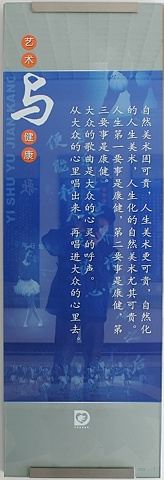 艺术
与
健康
YI SHU YU JIAN KANG
自然美术固可贵，人生美术更可贵，自然化
的人生美术，人生化的自然美术尤其可贵。
人生第一要事是康健，第二要事是康健，第
三要事是康健。
大众的歌曲是大众的心灵的呼声。
从大众的心里唱出来，再唱进大众的心里去。